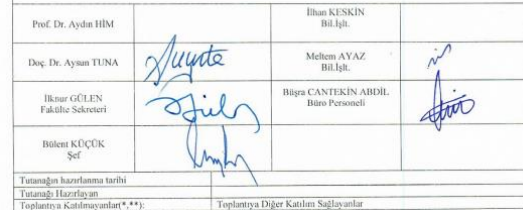 Prof. Dr. Aydın HİM
İlhan KESKİN
Bil.İşlt.
Doç. Dr. Aysun TUNA
Meltem AYAZ
Bil.İşlt.
İlknur GÜLEN
Fakülte Sekreteri
Büşra CANTEKİN ABDİL
Büro Personeli
Bülent KÜÇÜK
Şef
Tutanağın hazırlanma tarihi
Tutanağı Hazırlayan
Toplantıya Katılmayanlar(*,**):
Toplantıya Diğer Katılım Sağlayanlar